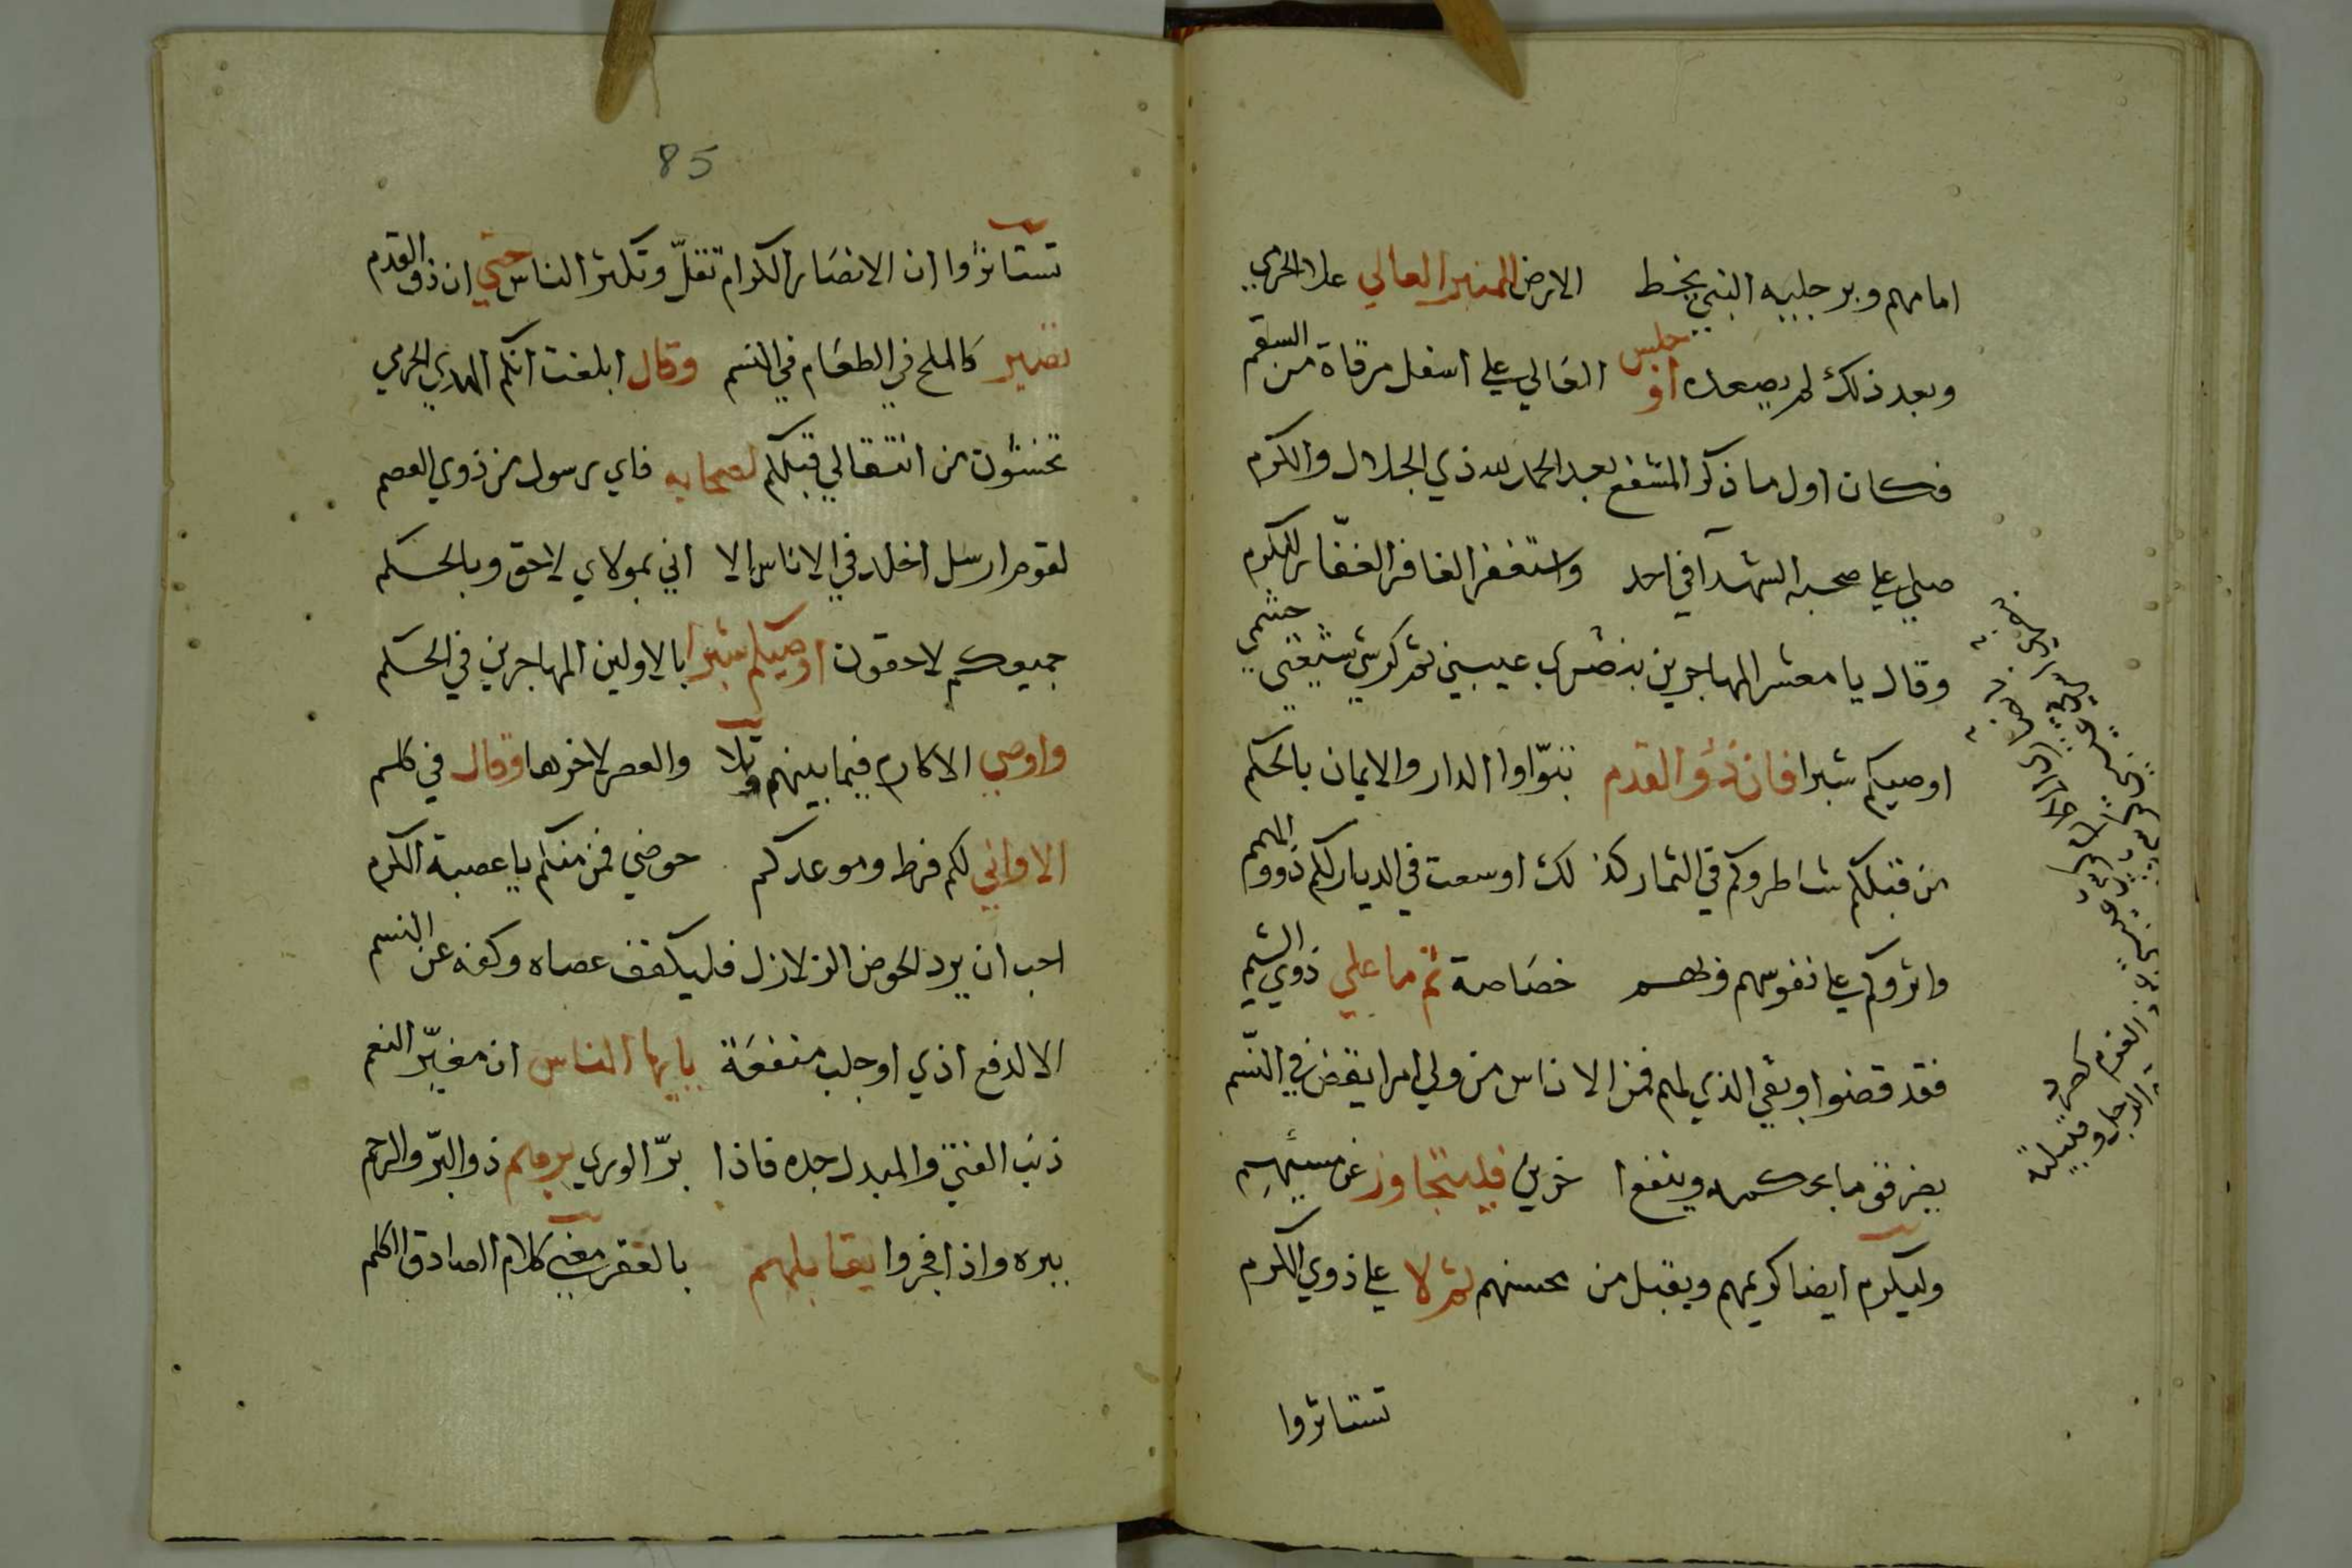 امامهم وبرجليه النبي يخط الارض المنبر العالي علا الحرمي
وبعد ذلك لم يصعده او جلس العالي علي اسفل مرقاة من السقم
فكان اول ما ذكر المشفع بعد الحمد لله ذي الجلال والكرم
صلي علي صحبه الشهدآ في احد واستغفر الغافر الغفّار للكرم
وقال يا معشر المهاجرين بنصري عيبتي ثم كرشي شيعتي حشمي
اوصيكم شبرا فان ذؤ القدم تبوّاوا الدار والايمان بالحكم
من قبلكم شاطروكم في الثمار كذلك اوسعت في الديار لكم ذووا الهمم
واثروكم علي نفوسهم ولهم خصاصة ثم ما علي ذوي الشيم
فقد قضوا وبقي الذي لهم فمن الاناس من ولي امرا يقض في النّسم
بضر قوما بحكمه وينفع اخرين فليتجاوز عن مسيئهم
وليكرم ايضا كريمهم ويقبل من محسنهم ثم لا علي ذوي الكرم
تستاثروا
العدم كصرد
الدجل وقبيلة
85
تستاثرؤا ان الانصار الكرام تقلّ وتكثر الناس حتي ان ذو القدم
تصير كالملح في الطعام في النسم وقال ابلغت انكم الهدي الحرمي
تخشون من انتقالي قبلكم لصحابه فاي رسول من ذوي العصم
لقوم ارسل اخلد في الاناس الا اني بمولاي لاحق وبالحكم
جميعكم لاحقون اوصيكم شبرا بالاولين المهاجرين في الحكم
واوصي الاكارم فيما بينهم وتلا والعصر لاخرها وقال في كلم
الا واني لكم فرط وموعدكم حوضي فمن منكم يا عصبة الكرم
احب ان يرد الحوض الزلازل فليكفف عصاه وكفه عن النسم
الا لدفع اذي او جلب منفعة يايها الناس ان مغيّر النعم
ذنب الفتي والمبدل جده فاذا برّ الوري برهم ذو البرّ والرحم
ببره واذا فجروا يقابلهم بالعقر معني كلام الصادق الكلم